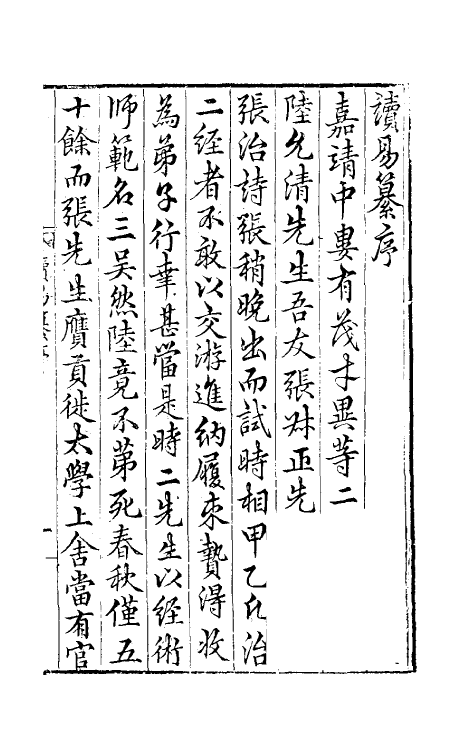 讀易纂序
嘉靖中婁有茂才異等二
陸允清先生吾友張叔正先
張治詩張稍晚出而試時相甲乙凡治
二経者不敢以交游進納履束贄得收
為弟子行幸甚當是時二先生以経術
師範名三吴然陸竟不第死春秋僅五
十餘而張先生膺貢徙太學上舍當有官